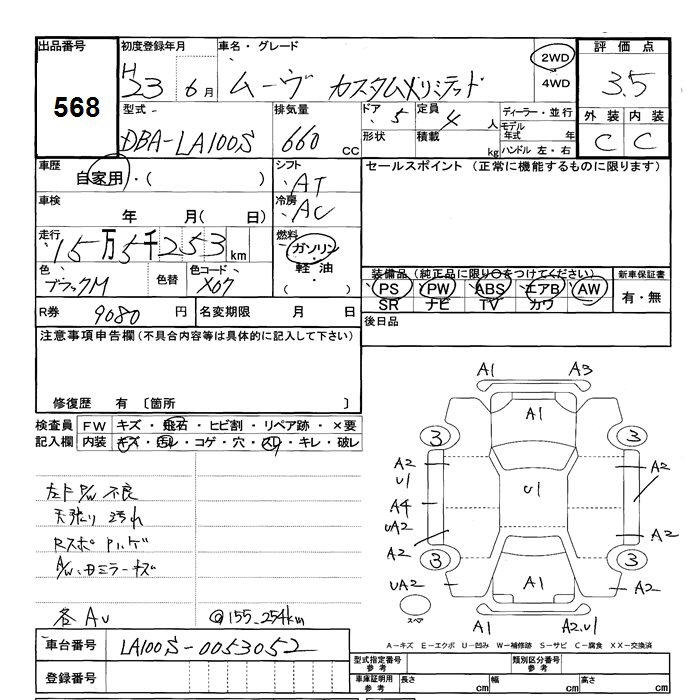 出品番号 初度登録年月 車名・グレード 評価点
568 H23 6月 ムーヴ カスタムXリミテッド 2WD 4WD 3.5
型式 排気量 ドア 5 定員 4人 ディーラー・並行 外装 内装
DBA-LA100S 660cc 形状 積載 kg モデル年式 年 ハンドル 左・右 C C
車歴 自家用・( ) シフト AT セールスポイント (正常に機能するものに限ります)
車検 年 月( 日) 冷房 AC
走行 15万5千253km 燃料 ガソリン 軽油 ( )
色 ブラックM 色替 色コード X07
装備品(純正品に限り○をつけてください) 新車保証書
PS PW ABS エアB AW 有・無
SR ナビ TV カワ
R券 9080円 名変期限 月 日 後日品
注意事項申告欄(不具合内容等は具体的に記入して下さい)
修復歴 有 〔箇所 〕
検査員記入欄 FW キズ・飛石・ヒビ割・リペア跡・×要
内装 キズ・汚れ・コゲ・穴・スレ・キレ・破れ
左F P/W 不良
天張り 汚れ
Rスポ ハゲ
A/W、ミラーキズ
各AU @155,254km
A1 A3
A1
3 3
A2 A2
U1 U1
A4
UA2 A2
A2
3 3
UA2 A1 A2
スペア
A1 A2.U1
A-キズ E-エクボ U-凹み W-補修跡 S-サビ C-腐食 XX-交換済
車台番号 LA100S-0053052
登録番号
型式指定番号 参考 類別区分番号 参考
車庫証明用 参考 長さ cm 幅 cm 高さ cm